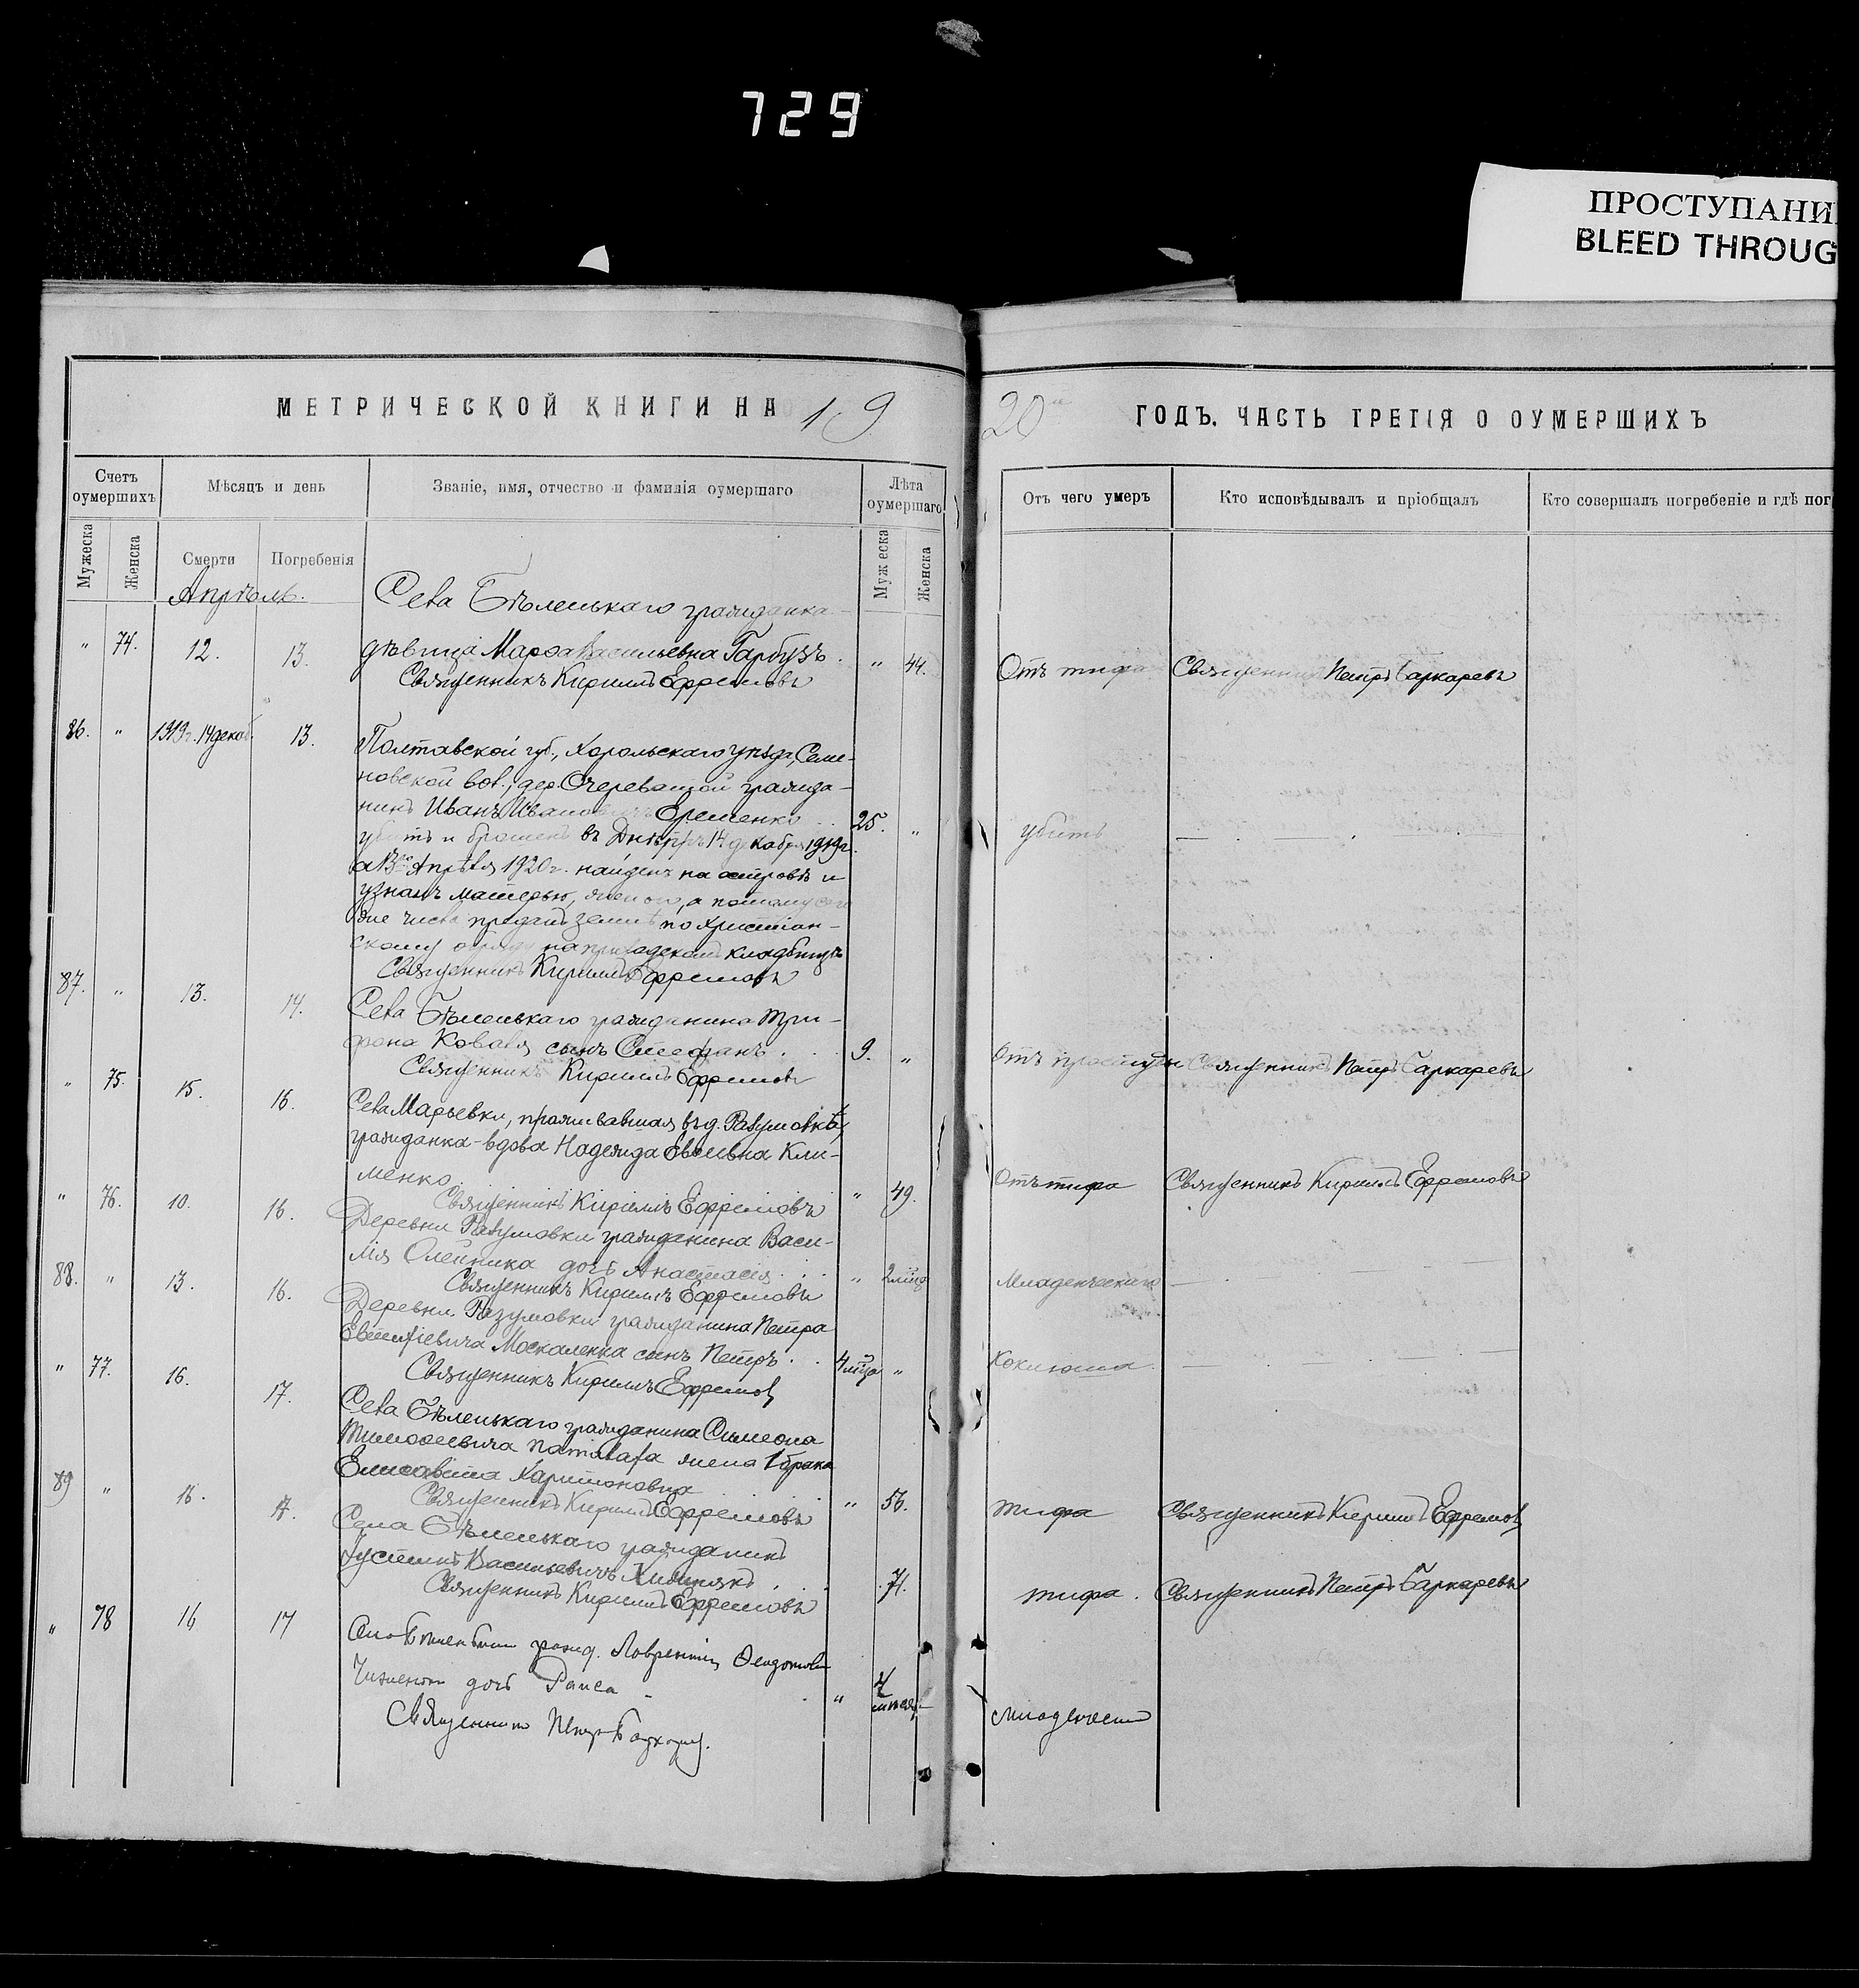 729
ПРОСТУПАНИ
BLEED THROUG
МЕТРИЧЕСКОЙ КНИГИ НА 19
20 ГОДЪ. ЧАСТЬ ТРЕТІЯ О ОУМЕРШИХЪ
Счетъ оумершихъ
Мѣсяцъ и день
Званіе, имя, отчество и фамилія оумершаго
Лѣта оумершаго
Отъ чего умеръ
Кто исповѣдывалъ и пріобщалъ
Кто совершалъ погребеніе и гдѣ пог
Мужеска
Женска
Смерти
Погребенія
Мужеска
Женска
Апрѣль.
Села Бѣленькаго гражданка
" 74. 12. 13. дѣвица Марѳа Васильевна Гарбузъ. " 44. Отъ тифа Священникъ Петръ
Священникъ Кириллъ Ефремовъ
86. " 1919г. 14 декаб. 13. Полтавской губ., Хорольскаго уѣзда, Семе-
новской вол., дер. Очереватой гражда-
нинъ Иванъ Ивановичъ Еременко 25. " убитъ
убитъ и брошенъ въ Днѣпръ 14 декабря 1919г.
а 13го Апрѣля 1920г. найденъ на островѣ и
узнанъ матерью, женою, а потому сего
же числа преданъ землѣ по христіан-
скому обряду на кладбищѣ
Священникъ Кириллъ Ефремовъ
87. " 13. 14. Села Бѣленькаго гражданина Три-
фона Коваля сынъ Стефанъ. 9. " Отъ простуды Священникъ Петръ
Священникъ Кириллъ Ефремовъ
" 75. 15. 16. Села Марьевки, проживавшая въ д. Разумовкѣ,
гражданка-вдова Надежда Евсевна Кли-
менко. " 49. Отъ тифа Священникъ Кириллъ Ефремовъ
Священникъ Кириллъ Ефремовъ
" 76. 10. 16. Деревни Разумовки гражданина Васи-
лія Олейника дочь Анастасія. " 2 мѣс. Младенческаго
Священникъ Кириллъ Ефремовъ
88. " 13. 16. Деревни Разумовки гражданина Петра
Евтихіевича Москаленка сынъ Петръ. 4 мѣсца " Коклюша.
Священникъ Кириллъ Ефремовъ
" 77. 16. 17. Села Бѣленькаго гражданина Симеона
Тимоѳеевича жена 1 брака
Елисавета Харитоновна " 56. тифа Священникъ Кириллъ Ефремовъ
Священникъ Кириллъ Ефремовъ
89 " 16. 17. Села Бѣленькаго гражданинъ
Іустинъ Васильевичъ 71. тифа. Священникъ Петръ
Священникъ Кириллъ Ефремовъ
" 78 16 17 гражд. Лаврентія
дочь Раиса " 4
Священникъ Петръ